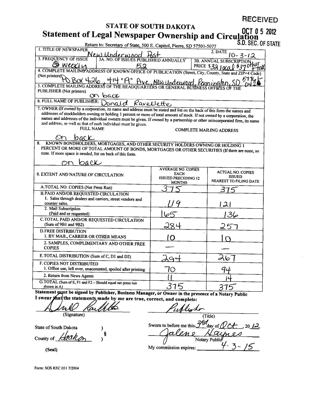 RECEIVED
STATE OF SOUTH DAKOTA
OCT 05 2012
Statement of Legal Newspaper Ownership and Circulation
S.D. SEC. OF STATE
Return to: Secretary of State, 500 E. Capitol, Pierre, SD 57501-5077
1. TITLE OF NEWSPAPER New Underwood Post
2. DATE 10-3-12
3. FREQUENCY OF ISSUE Weekly
3A. NO. OF ISSUES PUBLISHED ANNUALLY 52
3B. ANNUAL SUBSCRIPTION
PRICE
4. COMPLETE MAILING ADDRESS OF KNOWN OFFICE OF PUBLICATION (Street, City, County, State and ZIP+4 Code)
(Not printers)
5. COMPLETE MAILING ADDRESS OF THE HEADQUARTERS OR GENERAL BUSINESS OFFICE OF THE
PUBLISHER (Not printer)
on back
6. FULL NAME OF PUBLISHER: Donald Ravellette
7. OWNER (If owned by a corporation, its name and address must be stated and listed on the back of this form the names and
addresses of stockholders owning or holding 1 percent or more of total amount of stock. If not owned by a corporation, the
names and addresses of the individual owners must be given. If owned by a partnership or other unincorporated firm, its name
and address, as well as that of each individual must be given.
FULL NAME
COMPLETE MAILING ADDRESS
on back
8. KNOWN BONDHOLDERS, MORTGAGES, AND OTHER SECURITY HOLDERS OWNING OR HOLDING 1
PERCENT OR MORE OF TOTAL AMOUNT OF BONDS, MORTGAGES OR OTHER SECURITIES (If there are none, so
state. If more space is needed, list on back of this form.
on back
9. EXTENT AND NATURE OF CIRCULATION
AVERAGE NO. COPIES
EACH
ISSUED PRECEDING 12
MONTHS
ACTUAL NO. COPIES
ISSUED
NEAREST TO FILING DATE
A. TOTAL NO. COPIES (Net Press Run) 375 375
B. PAID AND/OR REQUESTED CIRCULATION
1. Sales through dealers and carriers, street vendors and
counter sales. 119 121
2. Mail Subscription
(Paid and or requested) 165 136
C. TOTAL PAID AND/OR REQUESTED CIRCULATION
(Sum of 9B1 and 9B2) 284 257
D. FREE DISTRIBUTION
1. BY MAIL, CARRIER OR OTHER MEANS 10 10
2. SAMPLES, COMPLIMENTARY AND OTHER FREE
COPIES — —
E. TOTAL DISTRIBUTION (Sum of C, D1 and D2) 294 267
F. COPIES NOT DISTRIBUTED
1. Office use, left over, unaccounted, spoiled after printing 70 94
2. Return from News Agents 11 14
G. TOTAL (Sum of E, F1 and F2 - Should equal net press run
shown in A) 375 375
Statement must be signed by Publisher, Business Manager, or Owner in the presence of a Notary Public
I swear that the statements made by me are true, correct, and complete:
Publisher
(Signature)
(Title)
State of South Dakota )
Sworn to before me this 3rd day of Oct, 2012
County of Haakon )
Notary Public
(Seal)
My commission expires: 4-3-15
Form: SOS